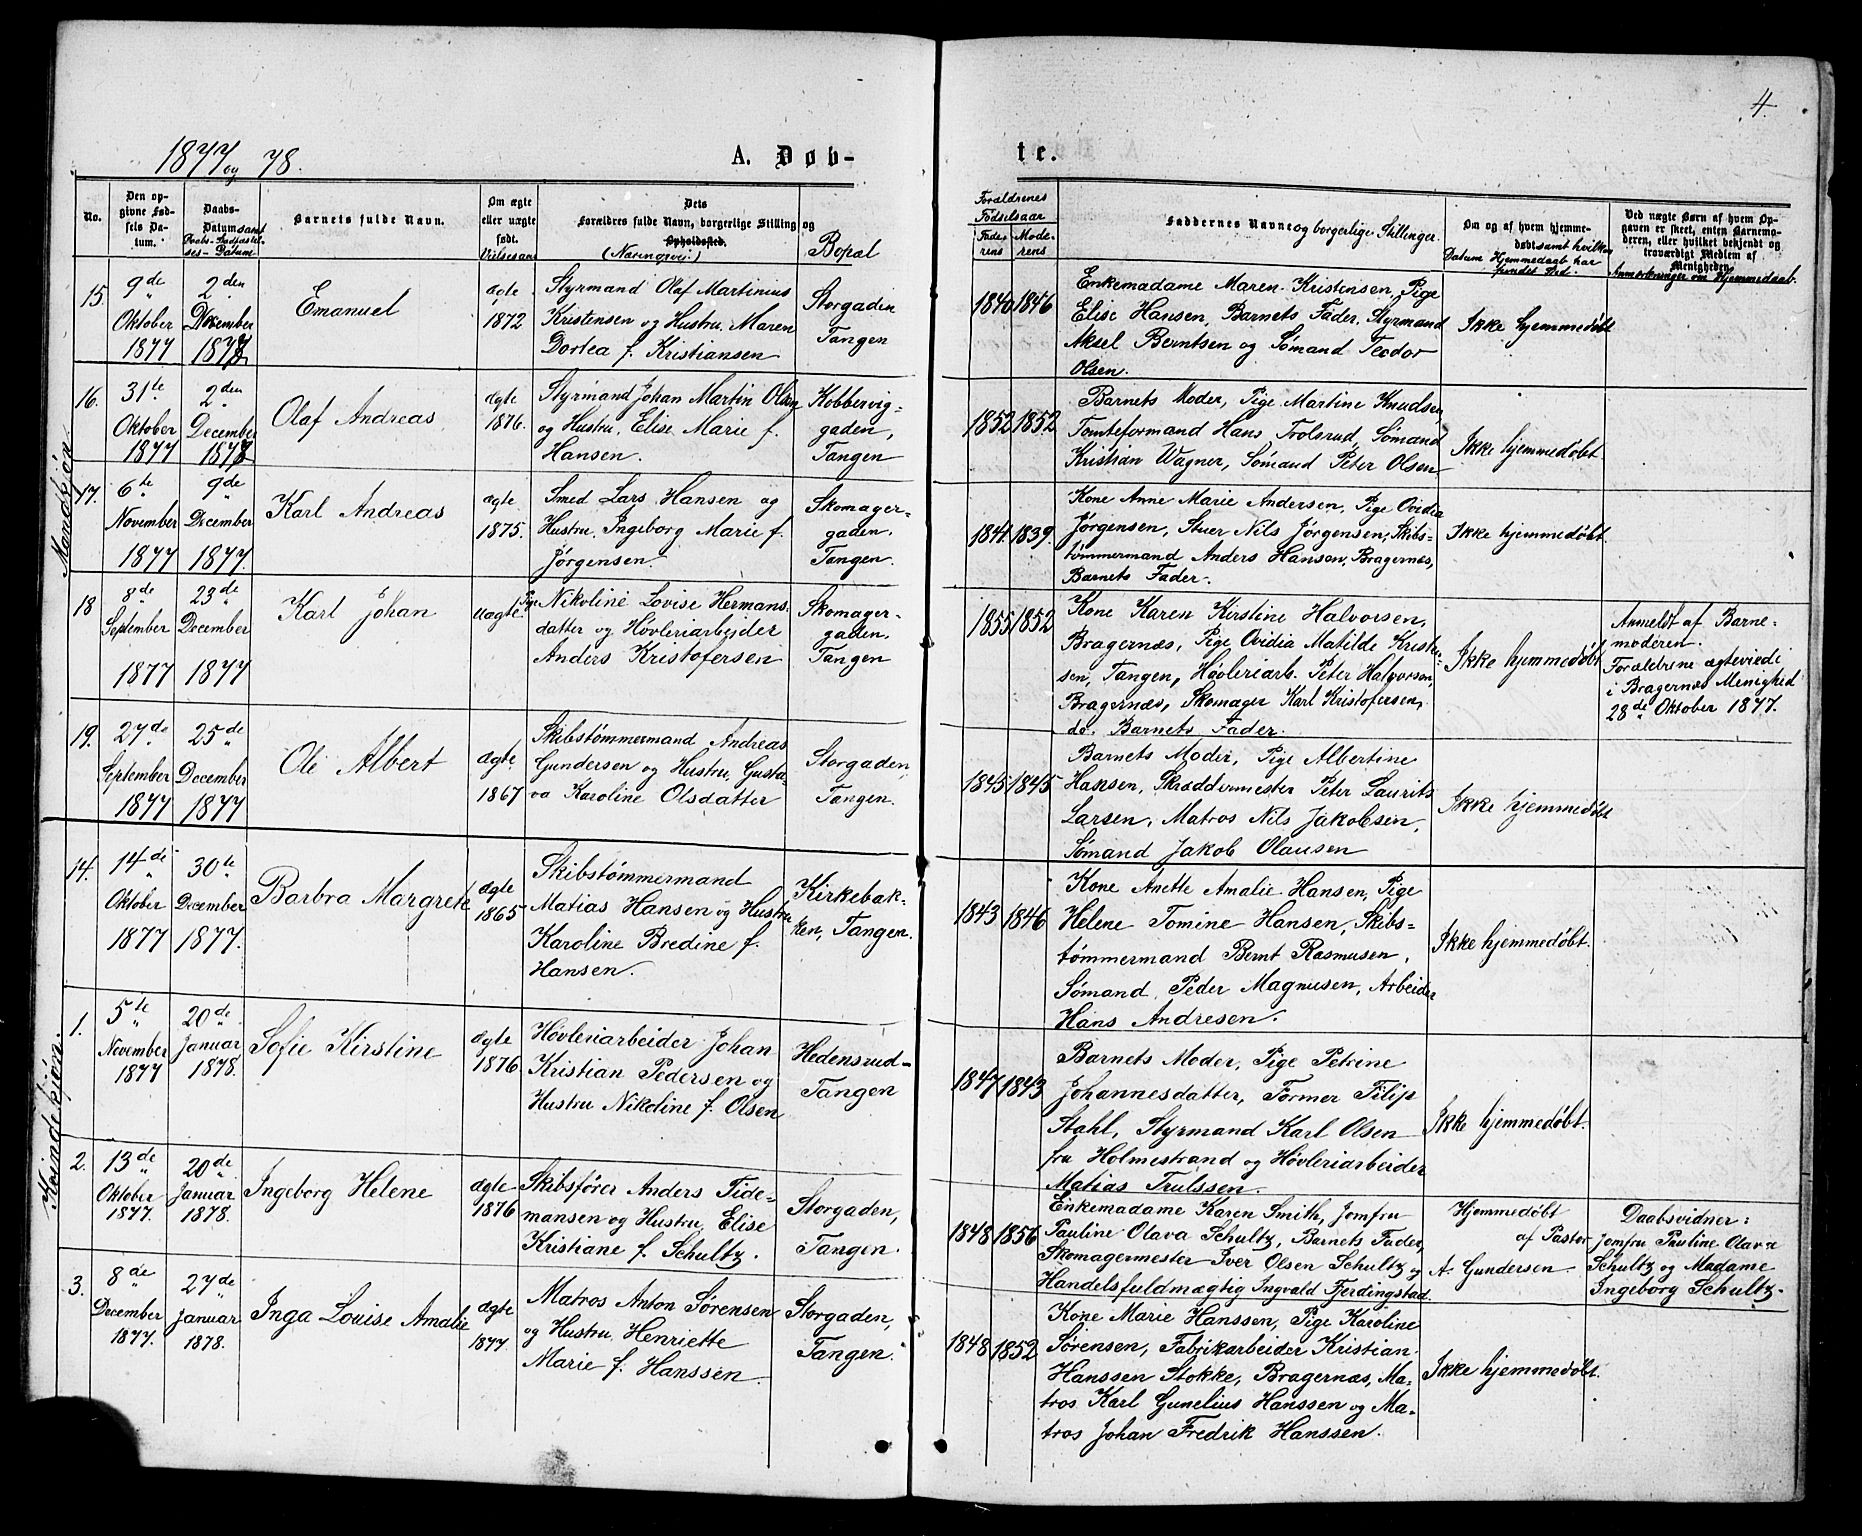 4.
1877 og 78.
A. Døb-
te.
No.
Den op-
givne Fød-
sels Da-
tum.
Daabs-
Datum samt
Daabs-Stadfæstel-
ses-Datum.
Barnets fulde Navn.
Om ægte
eller uægte
født.
Vielsesaar
Dets
Forældres fulde Navn, borgerlige Stilling og
Opholdssted.
(Næringsvei)
Bopæl
Forældrenes
Fødselsaar
Fade-
rens
Mode-
rens
Faddernes Navne og borgerlige Stillinger.
Om og af hvem hjemme-
døbt samt hvilken
Datum Hjemmedaab har
fundet Sted.
Ved uægte Børn af hvem Op-
gaven er skeet, enten Barnemo-
deren, eller hvilket bekjendt og
troværdigt Medlem af
Menigheden.
Anmerkninger om Hjemmedaab.
Mandkjøn
15.
9de
Oktober
1877
2den
December
1877
Emanuel
ægte
1872
Styrmand Olaf Martinius
Kristensen og Hustru, Maren
Dortea f. Kristiansen
Storgaden
Tangen
1840
1846
Enkemadame Maren Kristensen, Pige
Elise Hansen, Barnets Fader, Styrmand
Aksel Berntsen og Sømand Teodor
Olsen.
Ikke hjemmedøbt
16.
31te
Oktober
1877
2den
December
1877
Olaf Andreas
ægte
1876.
Styrmand Johan Martin Olsen
og Hustru, Elise Marie f.
Hansen.
Kobbervig-
gaden,
Tangen
1852
1852
Barnets Moder, Pige Martine Knudsen,
Tomteformand Hans Trolsrud, Sømand
Kristian Wagner, Sømand Peter Olsen
Ikke hjemmedøbt.
17.
6te
November
1877
9de
December
1877.
Karl Andreas
ægte
1875.
Smed Lars Hansen og
Hustru, Ingeborg Marie f.
Jørgensen.
Skomager-
gaden.
Tangen.
1841.
1839.
Kone Anne Marie Andersen, Pige Ovidia
Jørgensen, Stuer Nils Jørgensen, Skibs-
tømmermand Anders Hansen, Bragernæs,
Barnets Fader.
Ikke hjemmedøbt.
18
8de
September
1877
23de
December
1877
Karl Johan
uægte
Pige Nikoline Lovise Hermans-
datter og Høvleriarbeider
Anders Kristofersen
Skomager-
gaden.
Tangen
1855
1852
Kone Karen Kirstine Halvorsen,
Bragernæs, Pige Ovidia Matilde Kristen-
sen, Tangen, Høvleriarb. Peter Halvorsen,
Bragernæs, Skomager Karl Kristofersen,
do. Barnets Fader.
Ikke hjemmedøbt
Anmeldt af Barne-
moderen.
Forældrene ægteviede i
i Bragernæs Menighed
28de Oktober 1877.
19.
27de
September
1877
25de
December
1877
Ole Albert
ægte
1867
Skibstømmermand Andreas
Gundersen og Hustru, Gusta-
va Karoline Olsdatter
Storgaden,
Tangen.
1845
1845
Barnets Moder, Pige Albertine
Hansen, Skræddermester Peter Laurits
Larsen, Matros Nils Jakobsen,
Sømand Jakob Olausen
Ikke hjemmedøbt
Kvindekjøn.
14.
14de
Oktober
1877
30te
December
1877.
Barbra Margrete
ægte
1865
Skibstømmermand
Matias Hansen og Hustru
Karoline Bredine f.
Hansen.
Kirkebak-
ken, Tangen.
1843
1846
Kone Anette Amalie Hansen, Pige
Helene Tomine Hansen, Skibs-
tømmermand Bernt Rasmusen,
Sømand Peder Magnusen, Arbeider
Hans Andresen.
Ikke hjemmedøbt.
1.
5te
November
1877
20de
Januar
1878.
Sofie Kirstine
ægte
1876
Høvleriarbeider Johan
Kristian Pedersen og
Hustru Nikoline f. Olsen
Hedensrud-
Tangen
1847
1843
Barnets Moder, Pige Petrine
Johannesdatter, Former Filip
Stahl, Styrmand Karl Olsen
fra Holmestrand og Høvleriarbeider
Matias Trulssen.
Ikke hjemmedøbt.
2.
13de
Oktober
1877.
20de
Januar
1878.
Ingeborg Helene
ægte
1876
Skibsfører Anders Tide-
mansen og Hustru, Elise
Kristiane f. Schultz.
Storgaden,
Tangen.
1848
1856
Enkemadame Karen Smith, Jomfru
Pauline Olava Schultz, Barnets Fader,
Skomagermester Iver Olsen Schultz og
Handelsfuldmægtig Ingvald Fjerdingstad.
Hjemmedøbt
af Pastor
A. Gundersen.
Daabsvidner:
Jomfru Pauline Olava
Schultz og Madame
Ingeborg Schultz.
3.
8de
December
1877.
27de
Januar
1878.
Inga Louise Amalie
ægte
1877.
Matros Anton Sørensen
og Hustru, Henriette
Marie f. Hanssen.
Storgaden,
Tangen.
1848
1852
Kone Marie Hanssen, Pige Karoline
Sørensen, Fabrikarbeider Kristian
Hanssen Stokke, Bragernæs, Ma-
tros Karl Gunelius Hanssen og Ma-
tros Johan Fredrik Hanssen.
Ikke hjemmedøbt.